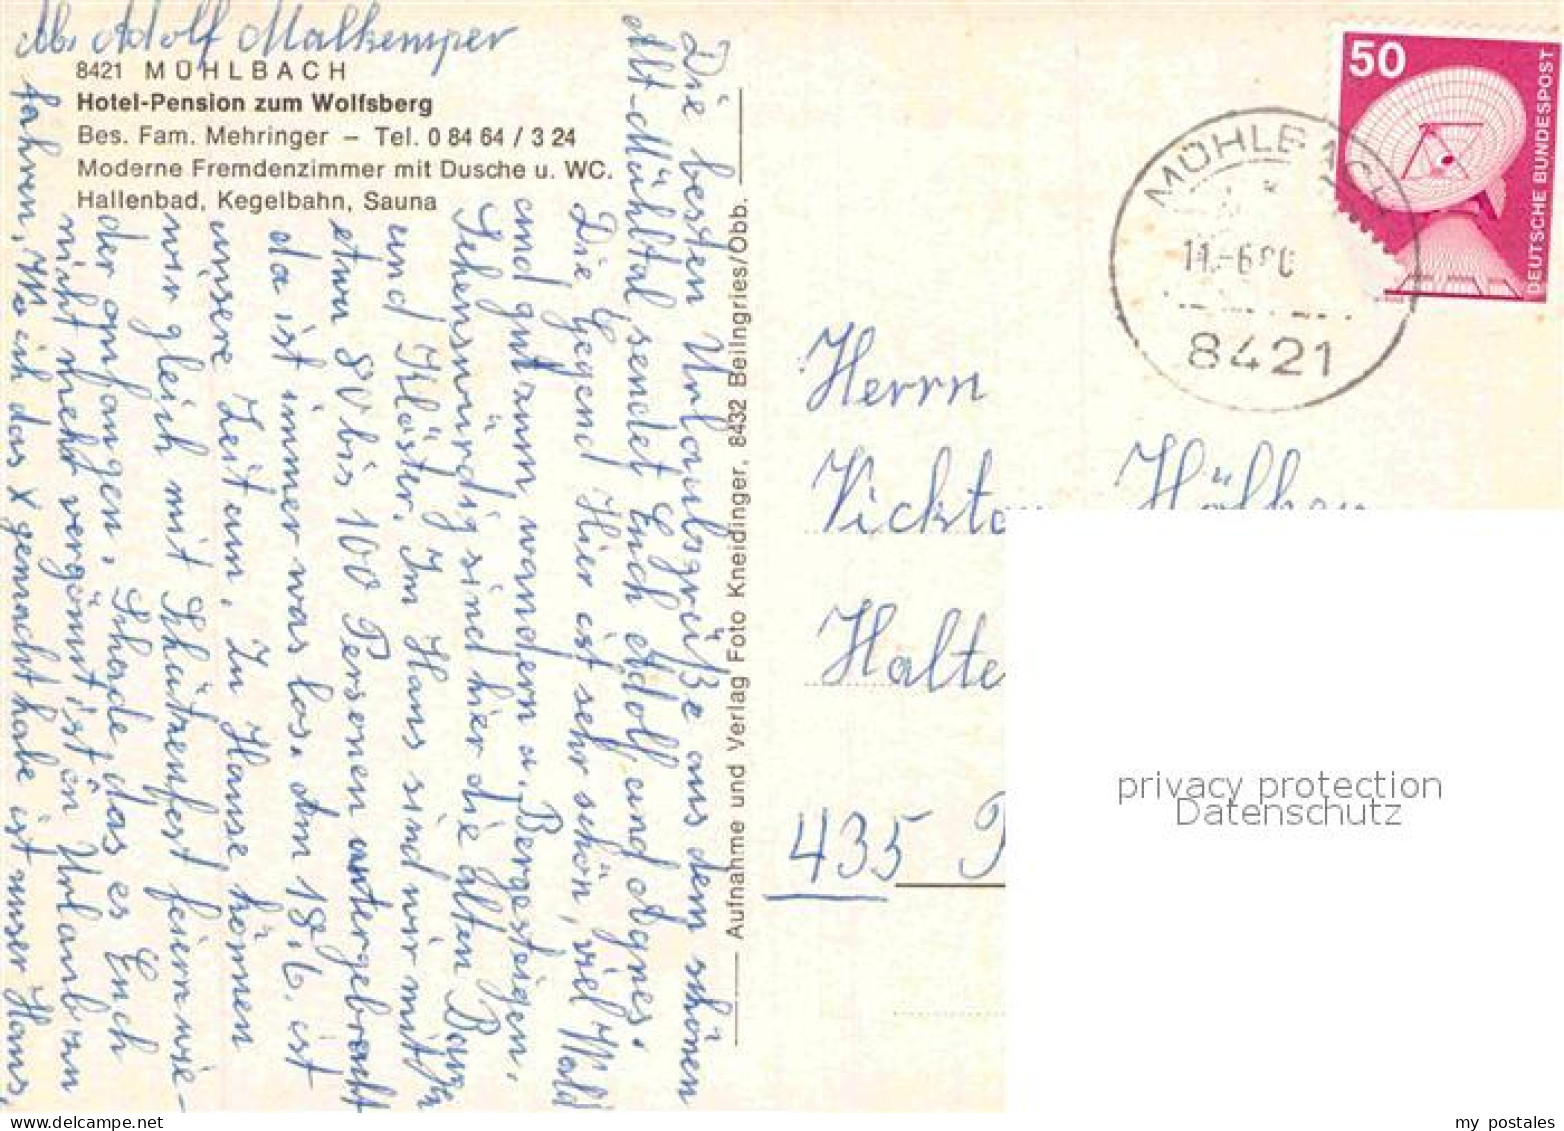 Abs. Adolf Malkemper
8421 MÜHLBACH
Hotel-Pension zum Wolfsberg
Bes. Fam. Mehringer – Tel. 0 84 64 / 3 24
Moderne Fremdenzimmer mit Dusche u. WC.
Hallenbad, Kegelbahn, Sauna
Die besten Urlaubsgrüße aus dem schönen
Alt-Mühltal sendet Euch Adolf und Agnes.
Die Gegend Hier ist sehr schön, viel Wald
und gut zum wandern u. Bergsteigen.
Sehenswürdig sind hier die alten
und Klöster. Im Haus sind wir mit
etwa 80 bis 100 Personen untergebracht
da ist immer was los. Am 18.6. ist
unsere Zeit um. Zu Hause können
wir gleich mit Schützenfest feiern wie-
der anfangen. Schade, das es Euch
nicht mehr vergönnt ist in Urlaub zu
fahren. Wo ich das X gemacht habe ist unser Haus.
Aufnahme und Verlag Foto Kneidinger, 8432 Beilngries/Obb.
50
DEUTSCHE BUNDESPOST
MÜHLBACH
11.-6.80
8421
Herrn
Halte
435
privacy protection
Datenschutz
my postales